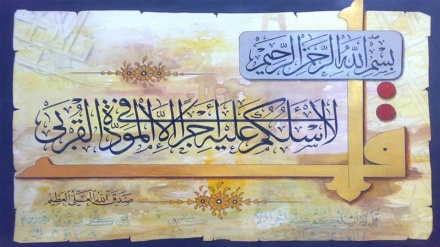 بسم الله الرحمن الرحيم
قل
لا أسئلكم عليه أجرا إلا المودة في القربى
صدق الله العلي العظيم